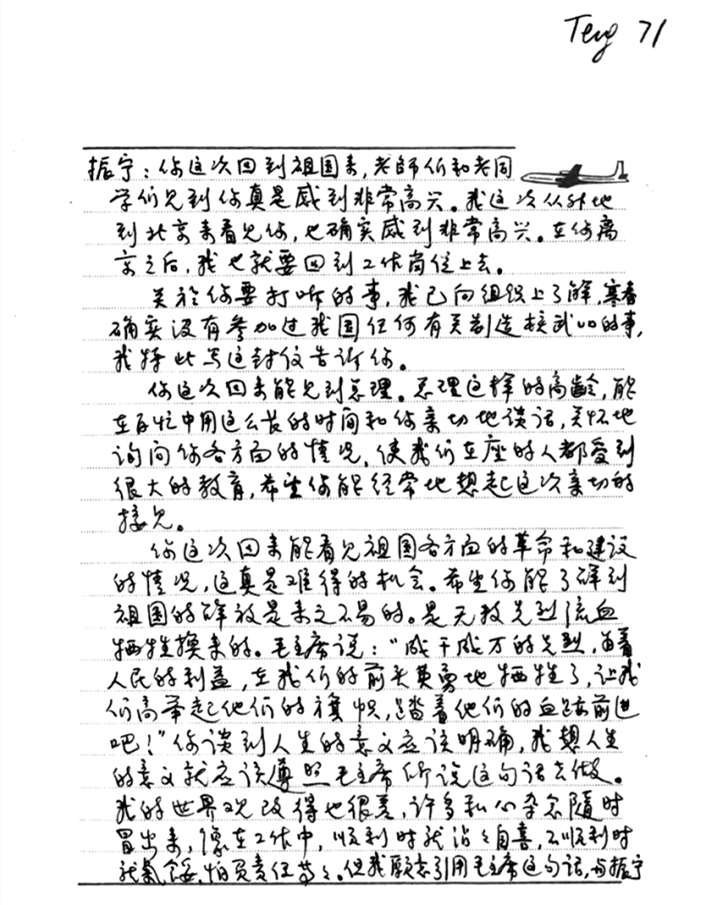 Teng 71
振宁：你这次回到祖国来，老师们和老同
学们见到你真是感到非常高兴。我这次从外地
到北京来看见你，也确实感到非常高兴。在你离
京之后，我也就要回到工作岗位上去。
关於你要打听的事，我已向组织上了解，寒春
确实没有参加过我国任何有关制造核武四的事，
我特此写这封信告诉你。
你这次回来能见到总理。总理这样的高龄，能
在百忙中用这么长的时间和你亲切地谈话，关怀地
询问你各方面的情况，使我们在座的人都受到
很大的教育，希望你能经常地想起这次亲切的
接见。
你这次回来能看见祖国各方面的革命和建设
的情况，这真是难得的机会。希望你能了解到
祖国的解放是来之不易的。是无数先烈流血
牺牲换来的。毛主席说：“成千成万的先烈，为着
人民的利益，在我们的前头英勇地牺牲了，让我
们高举起他们的旗帜，踏着他们的血迹前进
吧！”你谈到人生的意义应该明确，我想人生
的意义就应该遵照毛主席所说这句话去做。
我的世界观改得也很差，许多私心杂念随时
冒出来，像在工作中，顺利时就沾沾自喜，不顺利时
就气馁，怕负责任等等。但我愿意引用毛主席这句话，与振宁